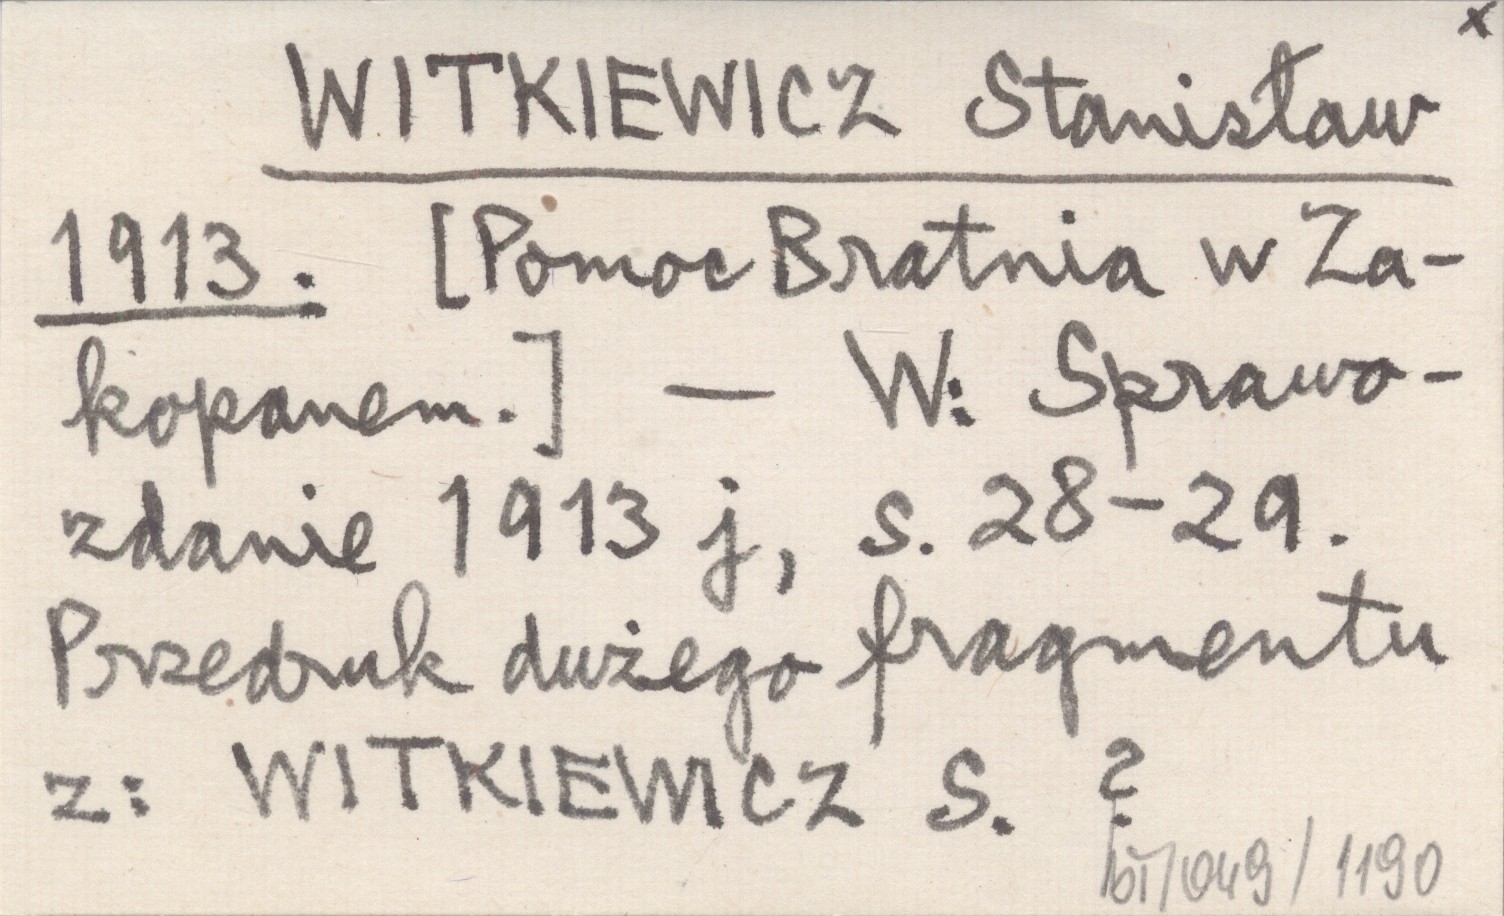 x
WITKIEWICZ Stanisław
1913. [Pomoc Bratnia w Za-
kopanem.] — W: Sprawo-
zdanie 1913 j, s. 28-29.
Przedruk dużego fragmentu
z: WITKIEWICZ S. ?
/049/1190